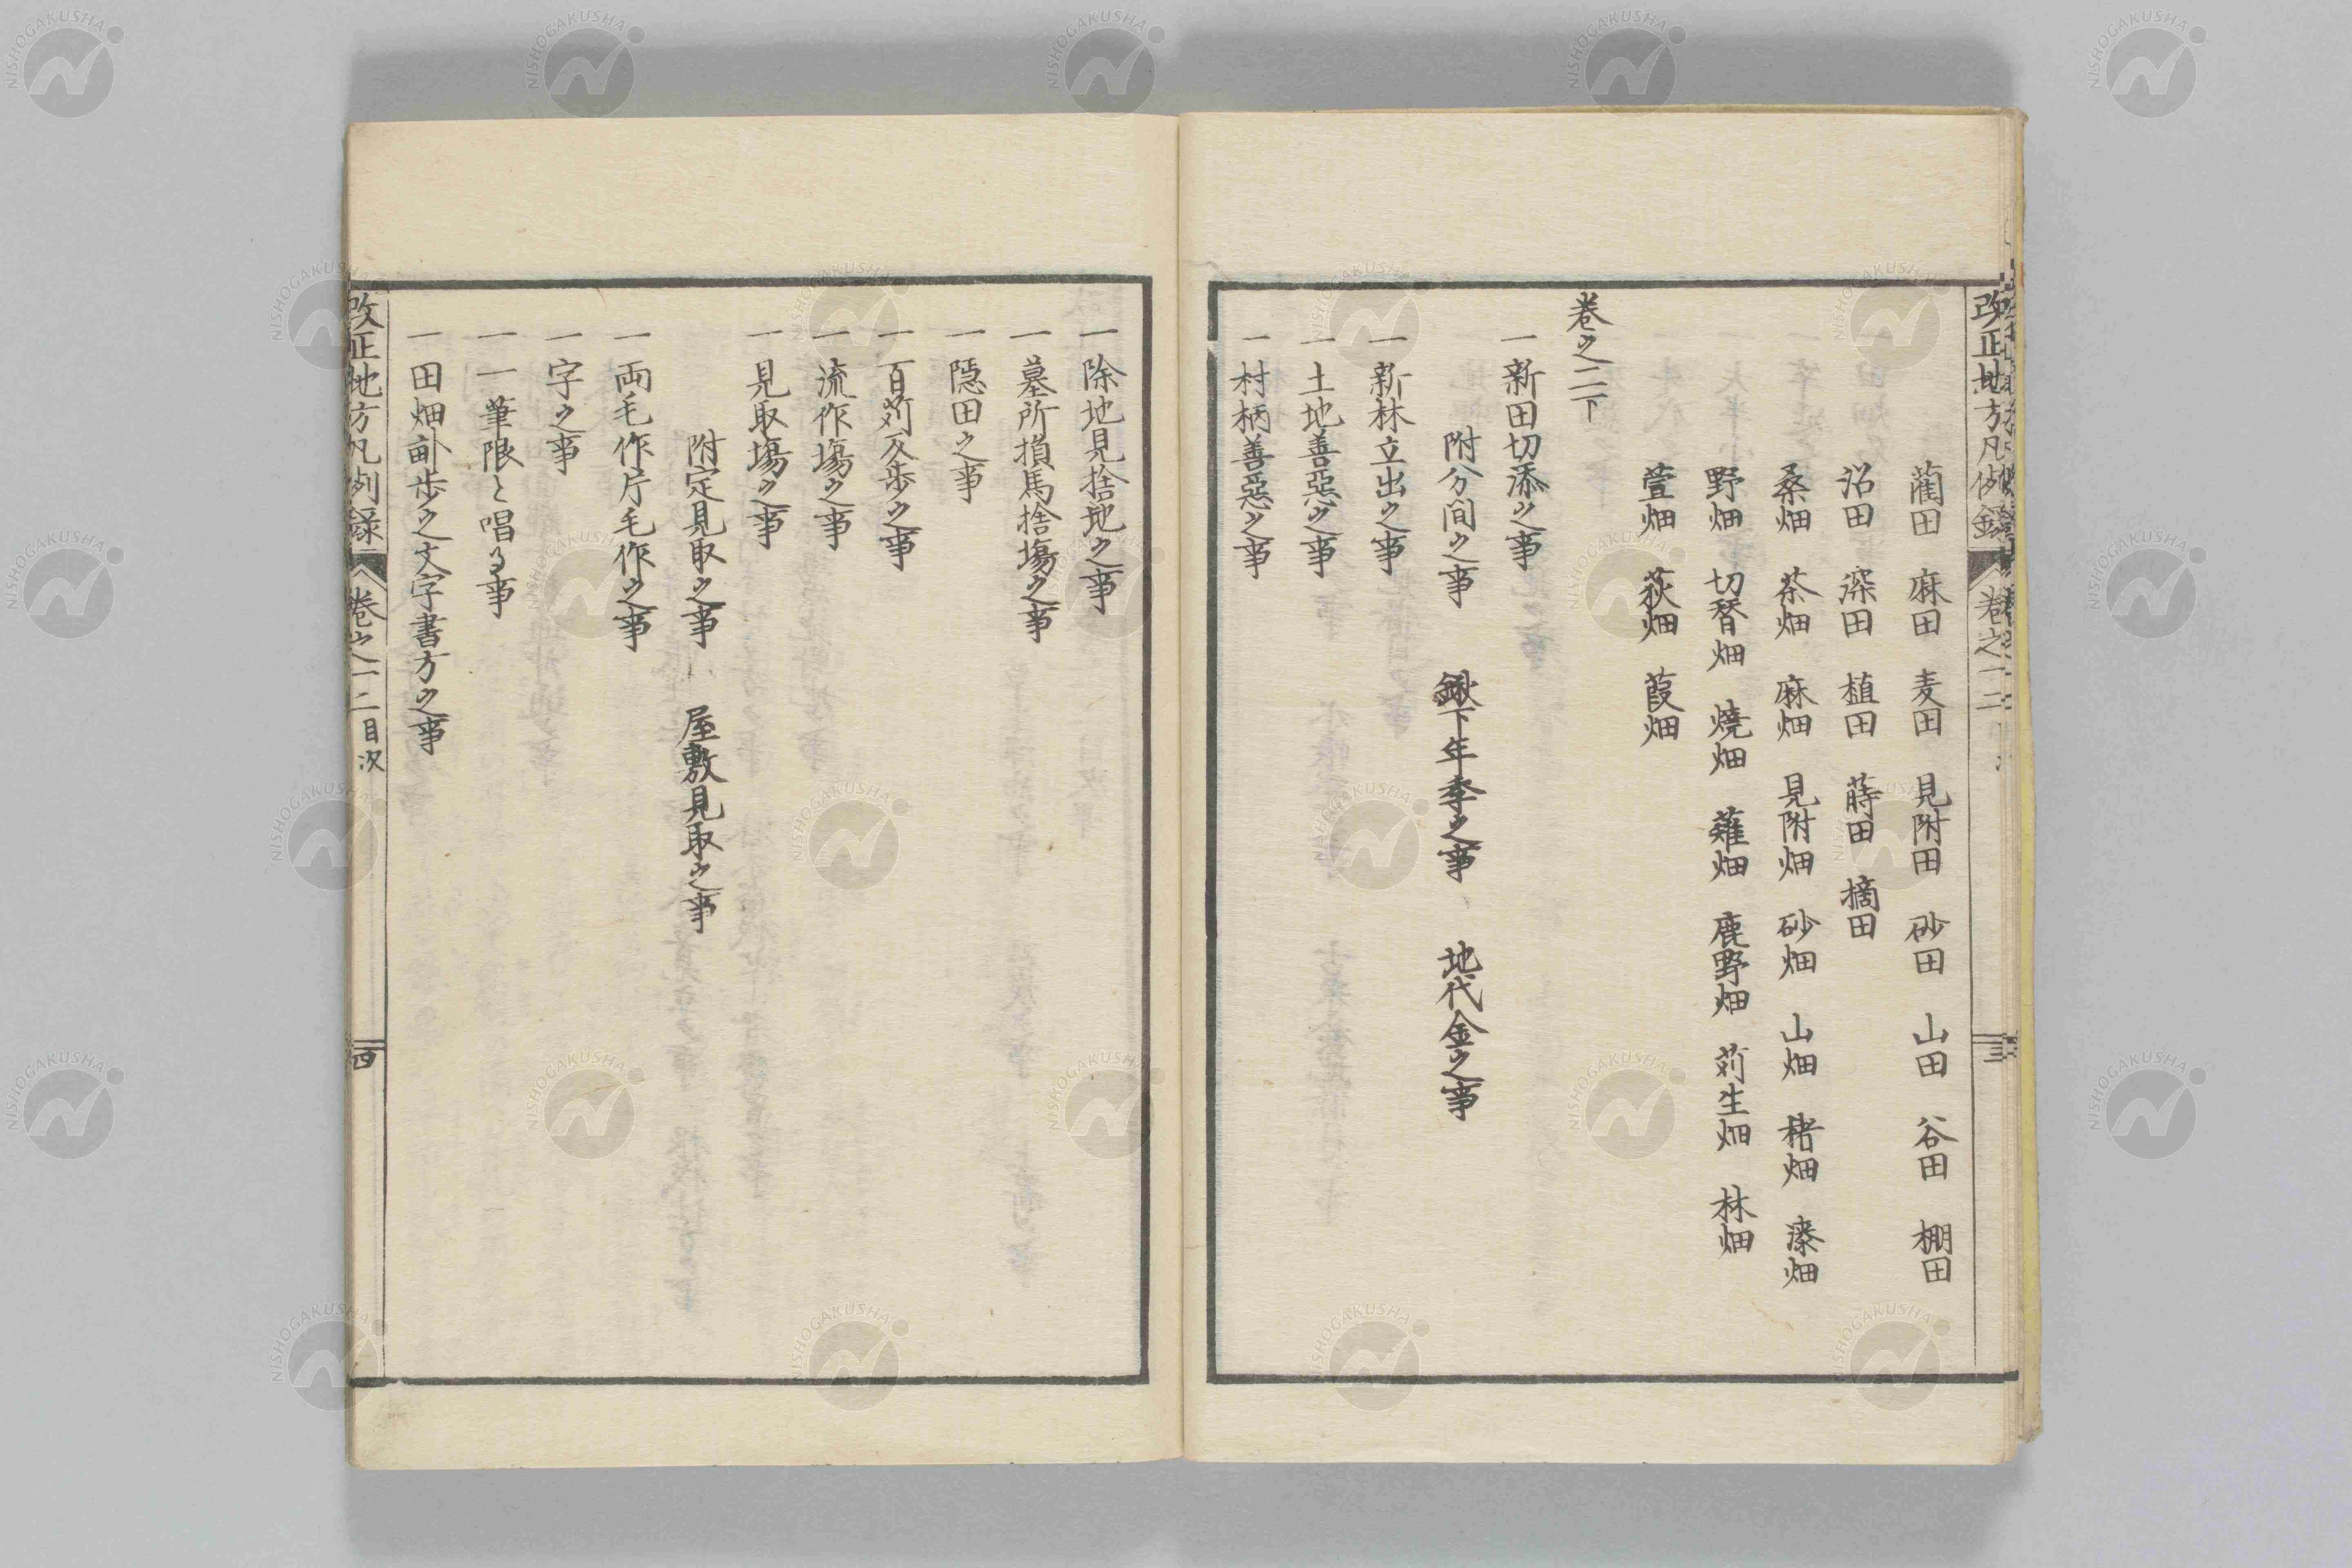 改正地方凡例録 巻之二
藺田 麻田 麦田 見附田 砂田 山田 谷田 棚田
沼田 深田 植田 蒔田 摘田
桑畑 茶畑 麻畑 見附畑 砂畑 山畑 楮畑 漆畑
野畑 切替畑 焼畑 薙畑 鹿野畑 苅生畑 林畑
萱畑 荻畑 葭畑
巻之二下
一新田切添之事
附分間之事 鍬下年季之事 地代金之事
一新林立出之事
一土地善惡之事
一村柄善惡之事
一除地見捨地之事
一墓所損馬捨場之事
一隠田之事
一百苅歩之事
一流作場之事
一見取場之事
附定見取之事 屋敷見取之事
一両毛作片毛作之事
一字之事
一一筆限と唱る事
一田畑畝歩之文字書方之事
改正地方凡例録 巻之二目次 四
NISHOGAKUSHA